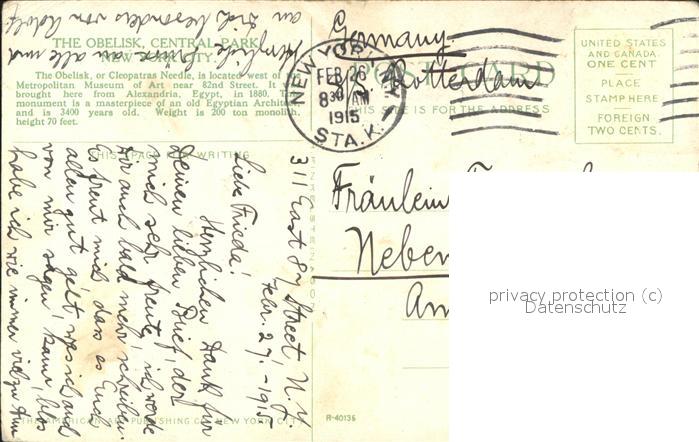 THE OBELISK, CENTRAL PARK,
NEW YORK CITY.
The Obelisk, or Cleopatras Needle, is located west of the
Metropolitan Museum of Art near 82nd Street. It was
brought here from Alexandria, Egypt, in 1880. The
monument is a masterpiece of an old Egyptian Architect
and is 3400 years old. Weight is 200 ton monolith,
height 70 feet.
THIS SPACE FOR WRITING
311 East 87 Street N.Y.
Febr. 27. - 1915
Liebe Frieda!
Herzlichen Dank für
Deinen lieben Brief, der
mich sehr freute, ich werde
Dir auch bald mehr schreiben.
Es freut mich, dass es Euch
allen gut geht, was ich auch
von mir sagen kann, blos
habe ich wie immer viel zu tun
Herzliche Grüsse an alle und
an Dich besonders von Adolf
NEW YORK, N.Y.
FEB 26
8 30 AM
1915
STA. K.
POST CARD
THIS SIDE IS FOR THE ADDRESS
UNITED STATES
AND CANADA
ONE CENT
PLACE
STAMP HERE
FOREIGN
TWO CENTS.
Germany
Rotterdam
Fräulein
Neben
Am
privacy protection (c)
Datenschutz
THE AMERICAN ART PUBLISHING CO., NEW YORK CITY
R-40135